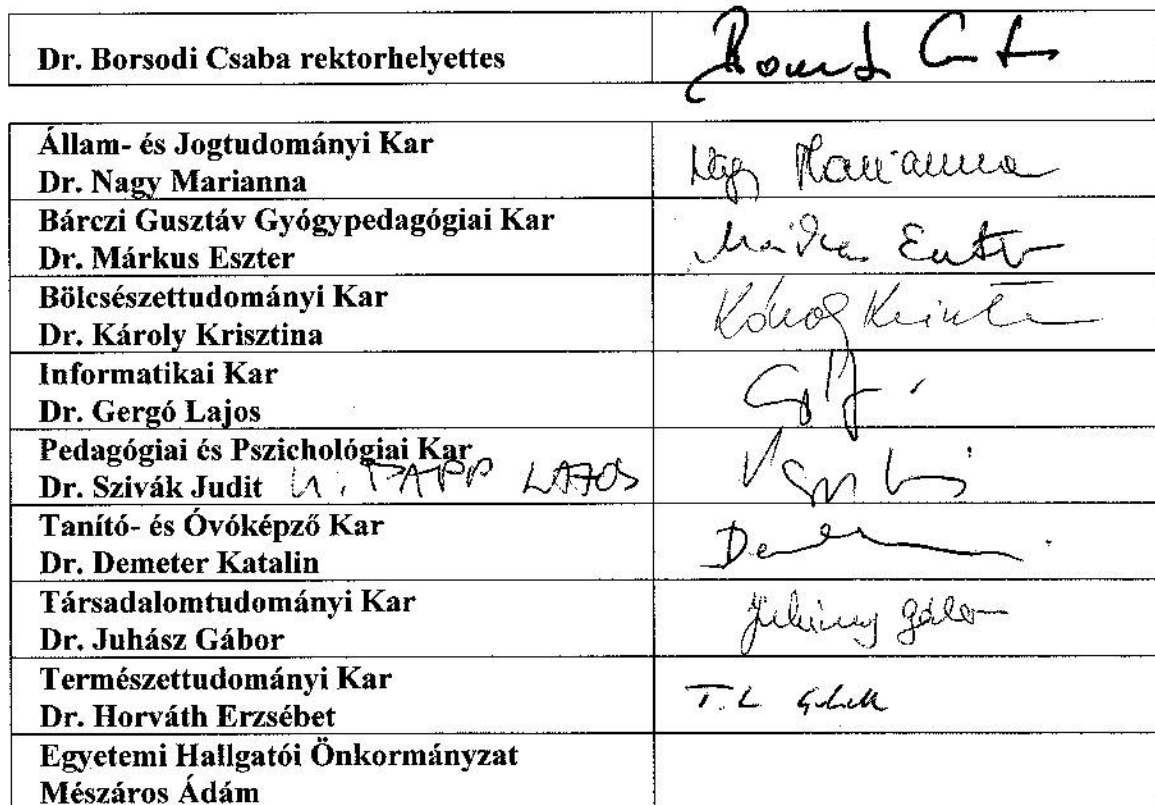 Dr. Borsodi Csaba rektorhelyettes
Állam- és Jogtudományi Kar
Dr. Nagy Marianna
Nagy Marianna
Bárczi Gusztáv Gyógypedagógiai Kar
Dr. Márkus Eszter
Bölcsészettudományi Kar
Dr. Károly Krisztina
Informatikai Kar
Dr. Gergó Lajos
Pedagógiai és Pszichológiai Kar
Dr. Szivák Judit h. PAPP LAJOS
Tanító- és Óvóképző Kar
Dr. Demeter Katalin
Társadalomtudományi Kar
Dr. Juhász Gábor
Juhász Gábor
Természettudományi Kar
Dr. Horváth Erzsébet
T. L
Egyetemi Hallgatói Önkormányzat
Mészáros Ádám